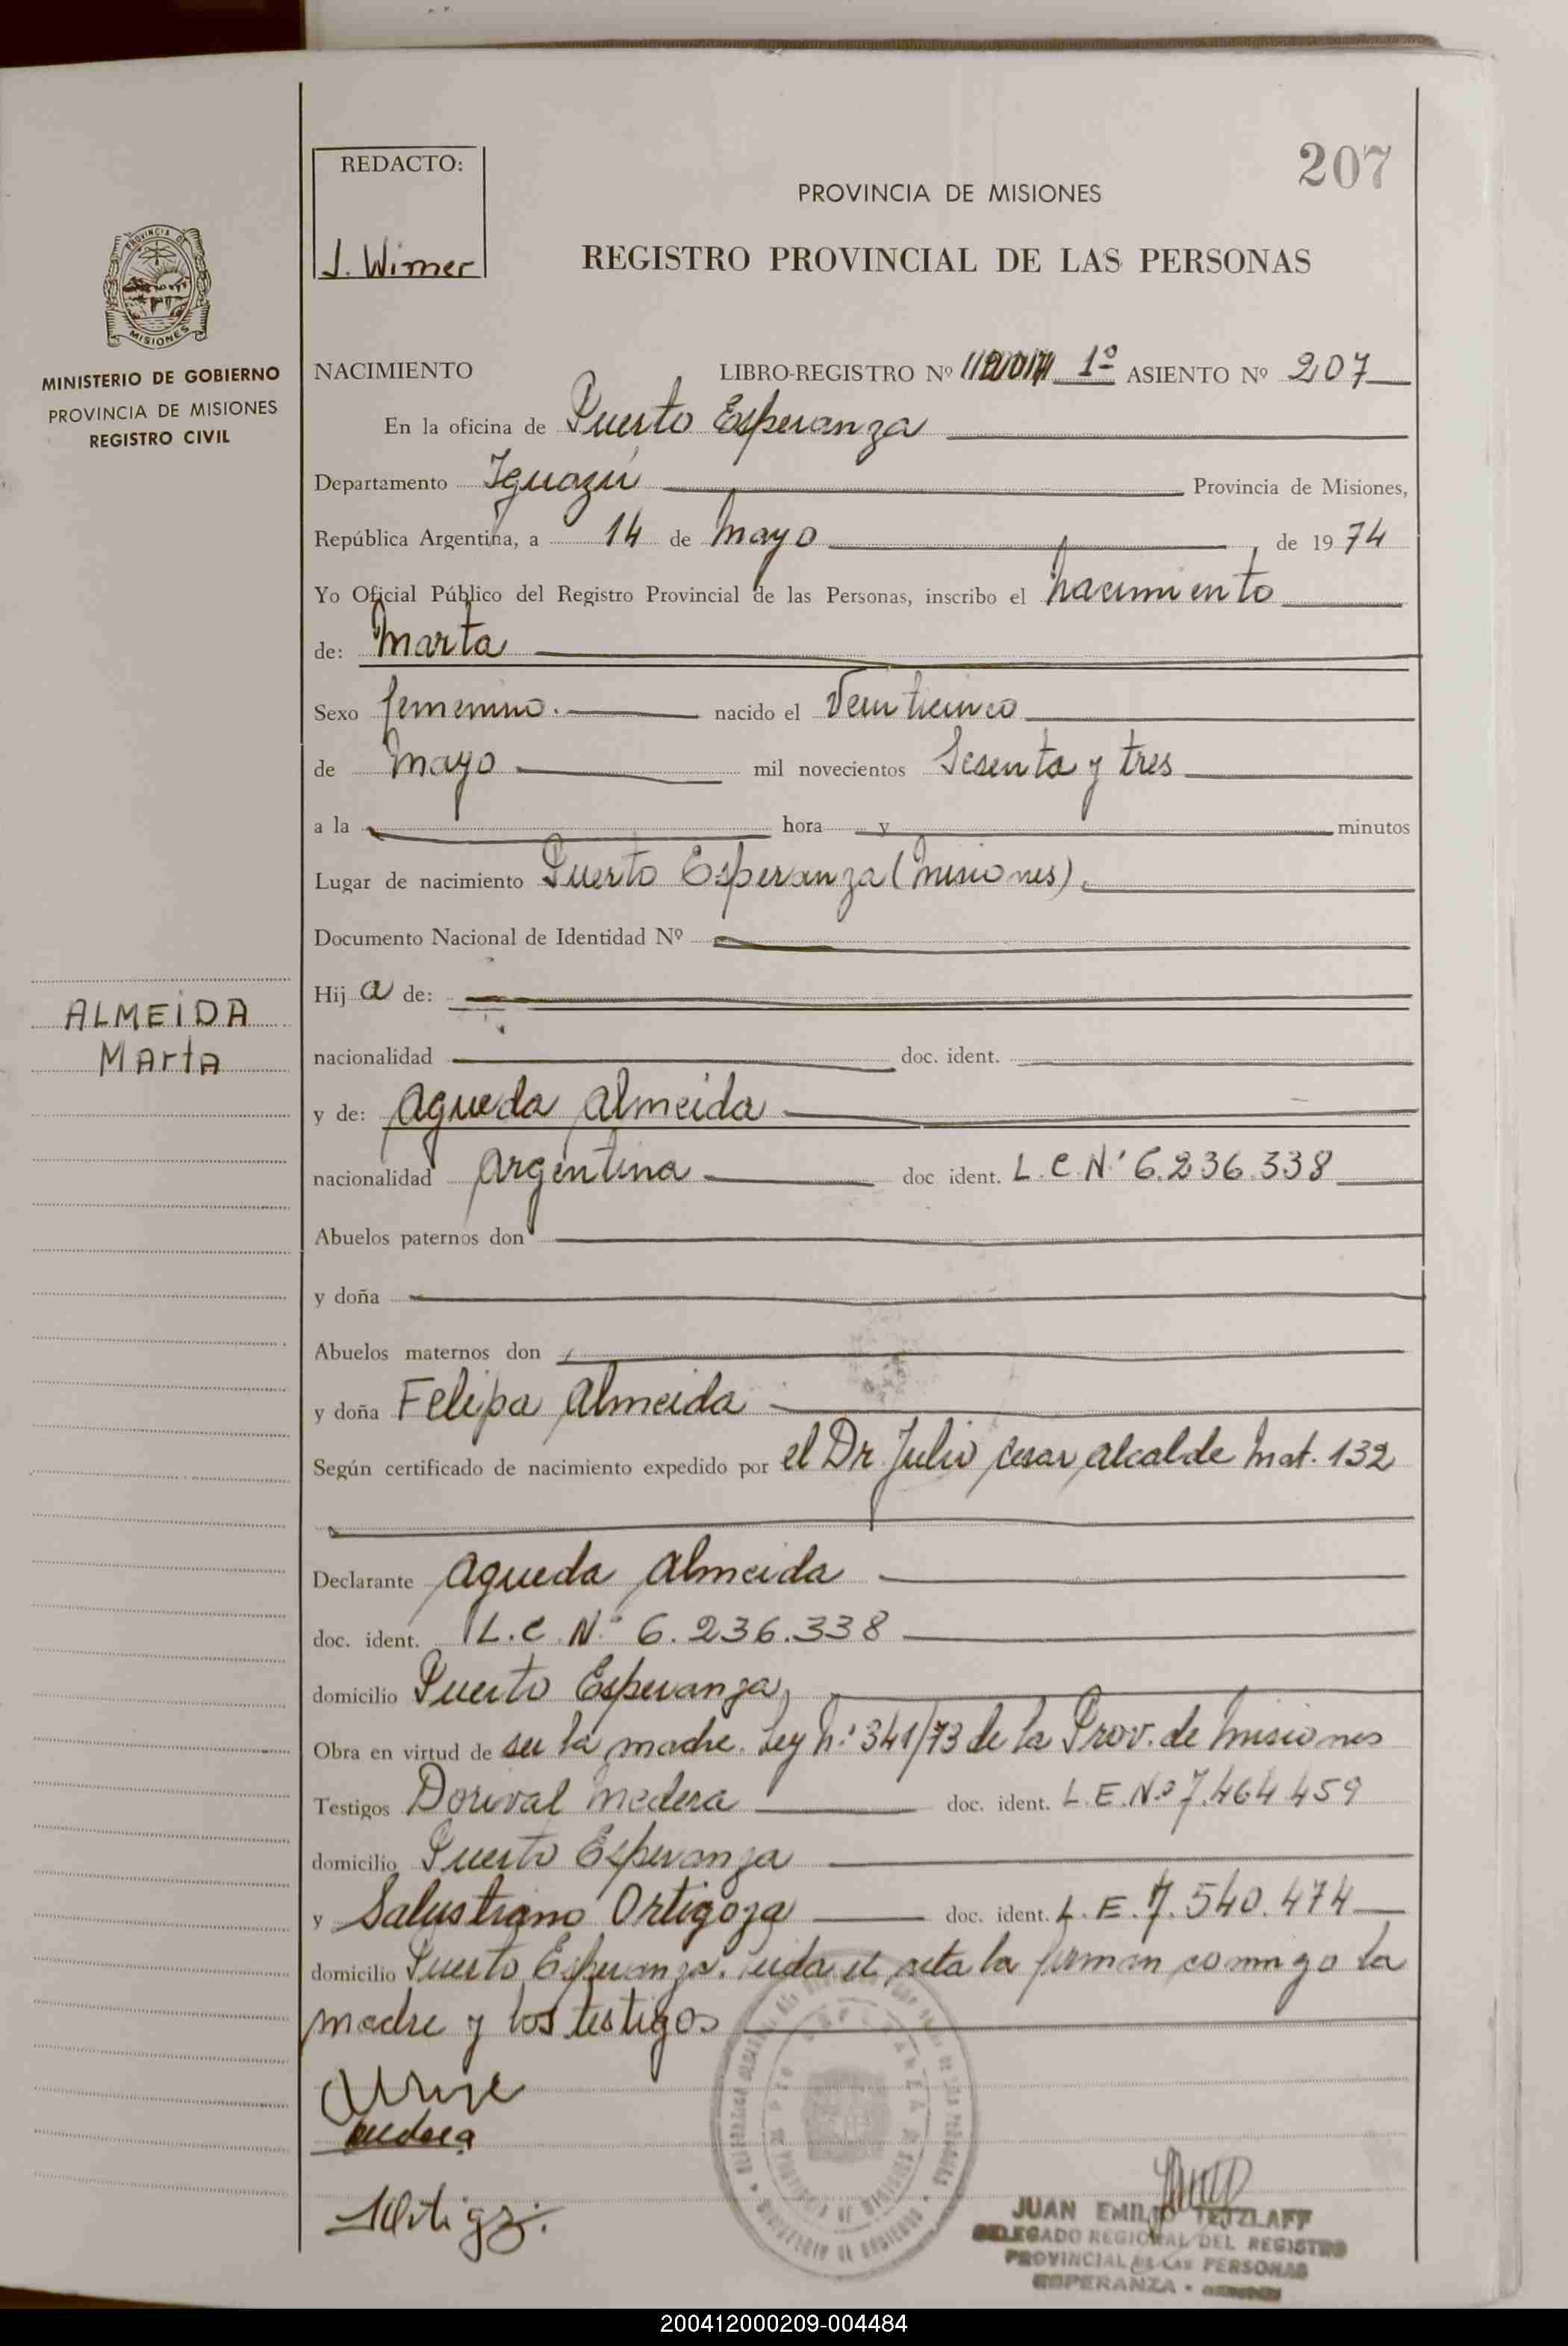 207
REDACTO:
J. Wimer
PROVINCIA DE MISIONES
REGISTRO PROVINCIAL DE LAS PERSONAS
PROVINCIA DE
MISIONES
MINISTERIO DE GOBIERNO
PROVINCIA DE MISIONES
REGISTRO CIVIL
NACIMIENTO LIBRO-REGISTRO Nº 1º ASIENTO Nº 207
En la oficina de Puerto Esperanza
Departamento Iguazú Provincia de Misiones,
República Argentina, a 14 de Mayo, de 1974
Yo Oficial Público del Registro Provincial de las Personas, inscribo el nacimiento
de: Marta
Sexo femenino. nacido el Veinticinco
de Mayo mil novecientos Sesenta y tres
a la hora y minutos
Lugar de nacimiento Puerto Esperanza (Misiones).
Documento Nacional de Identidad Nº
Hij a de:
ALMEIDA
Marta
nacionalidad doc. ident.
y de: Agueda Almeida
nacionalidad Argentina doc ident. L.C.Nº 6.236.338
Abuelos paternos don
y doña
Abuelos maternos don
y doña Felipa Almeida
Según certificado de nacimiento expedido por el Dr. Julio Cesar Alcalde Mat. 132
Declarante Agueda Almeida
doc. ident. L.C.Nº 6.236.338
domicilio Puerto Esperanza,
Obra en virtud de ser la madre. Ley Nº 341/73 de la Prov. de Misiones
Testigos Dorival Medera doc. ident. L.E.Nº 7.464.459
domicilio Puerto Esperanza
y Salustiano Ortigoza doc. ident. L.E.7.540.474
domicilio Puerto Esperanza. Leida el acta la firman conmigo la
madre y los testigos
JUAN EMILIO TETZLAFF
DELEGADO REGIONAL DEL REGISTRO
PROVINCIAL DE LAS PERSONAS
ESPERANZA -
200412000209-004484